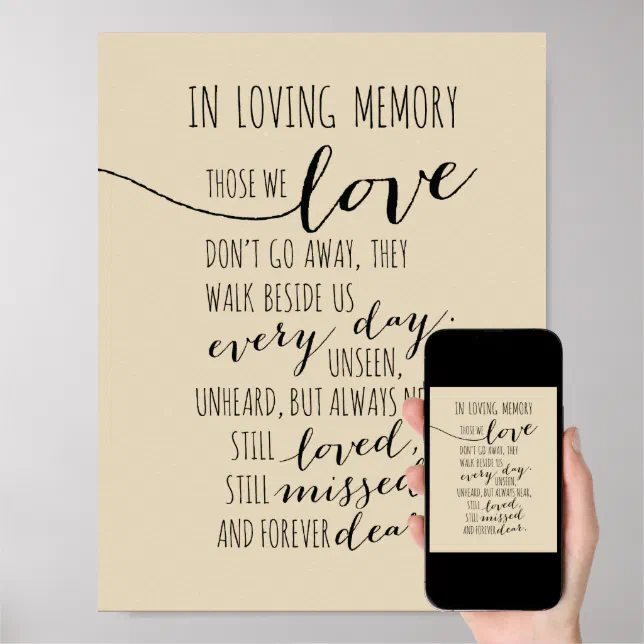 IN LOVING MEMORY
THOSE WE love
DON'T GO AWAY, THEY
WALK BESIDE US
every day.
UNSEEN,
UNHEARD, BUT ALWAYS NE
STILL loved,
STILL missed
AND FOREVER dear
IN LOVING MEMORY
THOSE WE love
DON'T GO AWAY, THEY
WALK BESIDE US
every day.
UNSEEN,
UNHEARD, BUT ALWAYS NEAR,
STILL loved,
STILL missed
AND FOREVER dear.